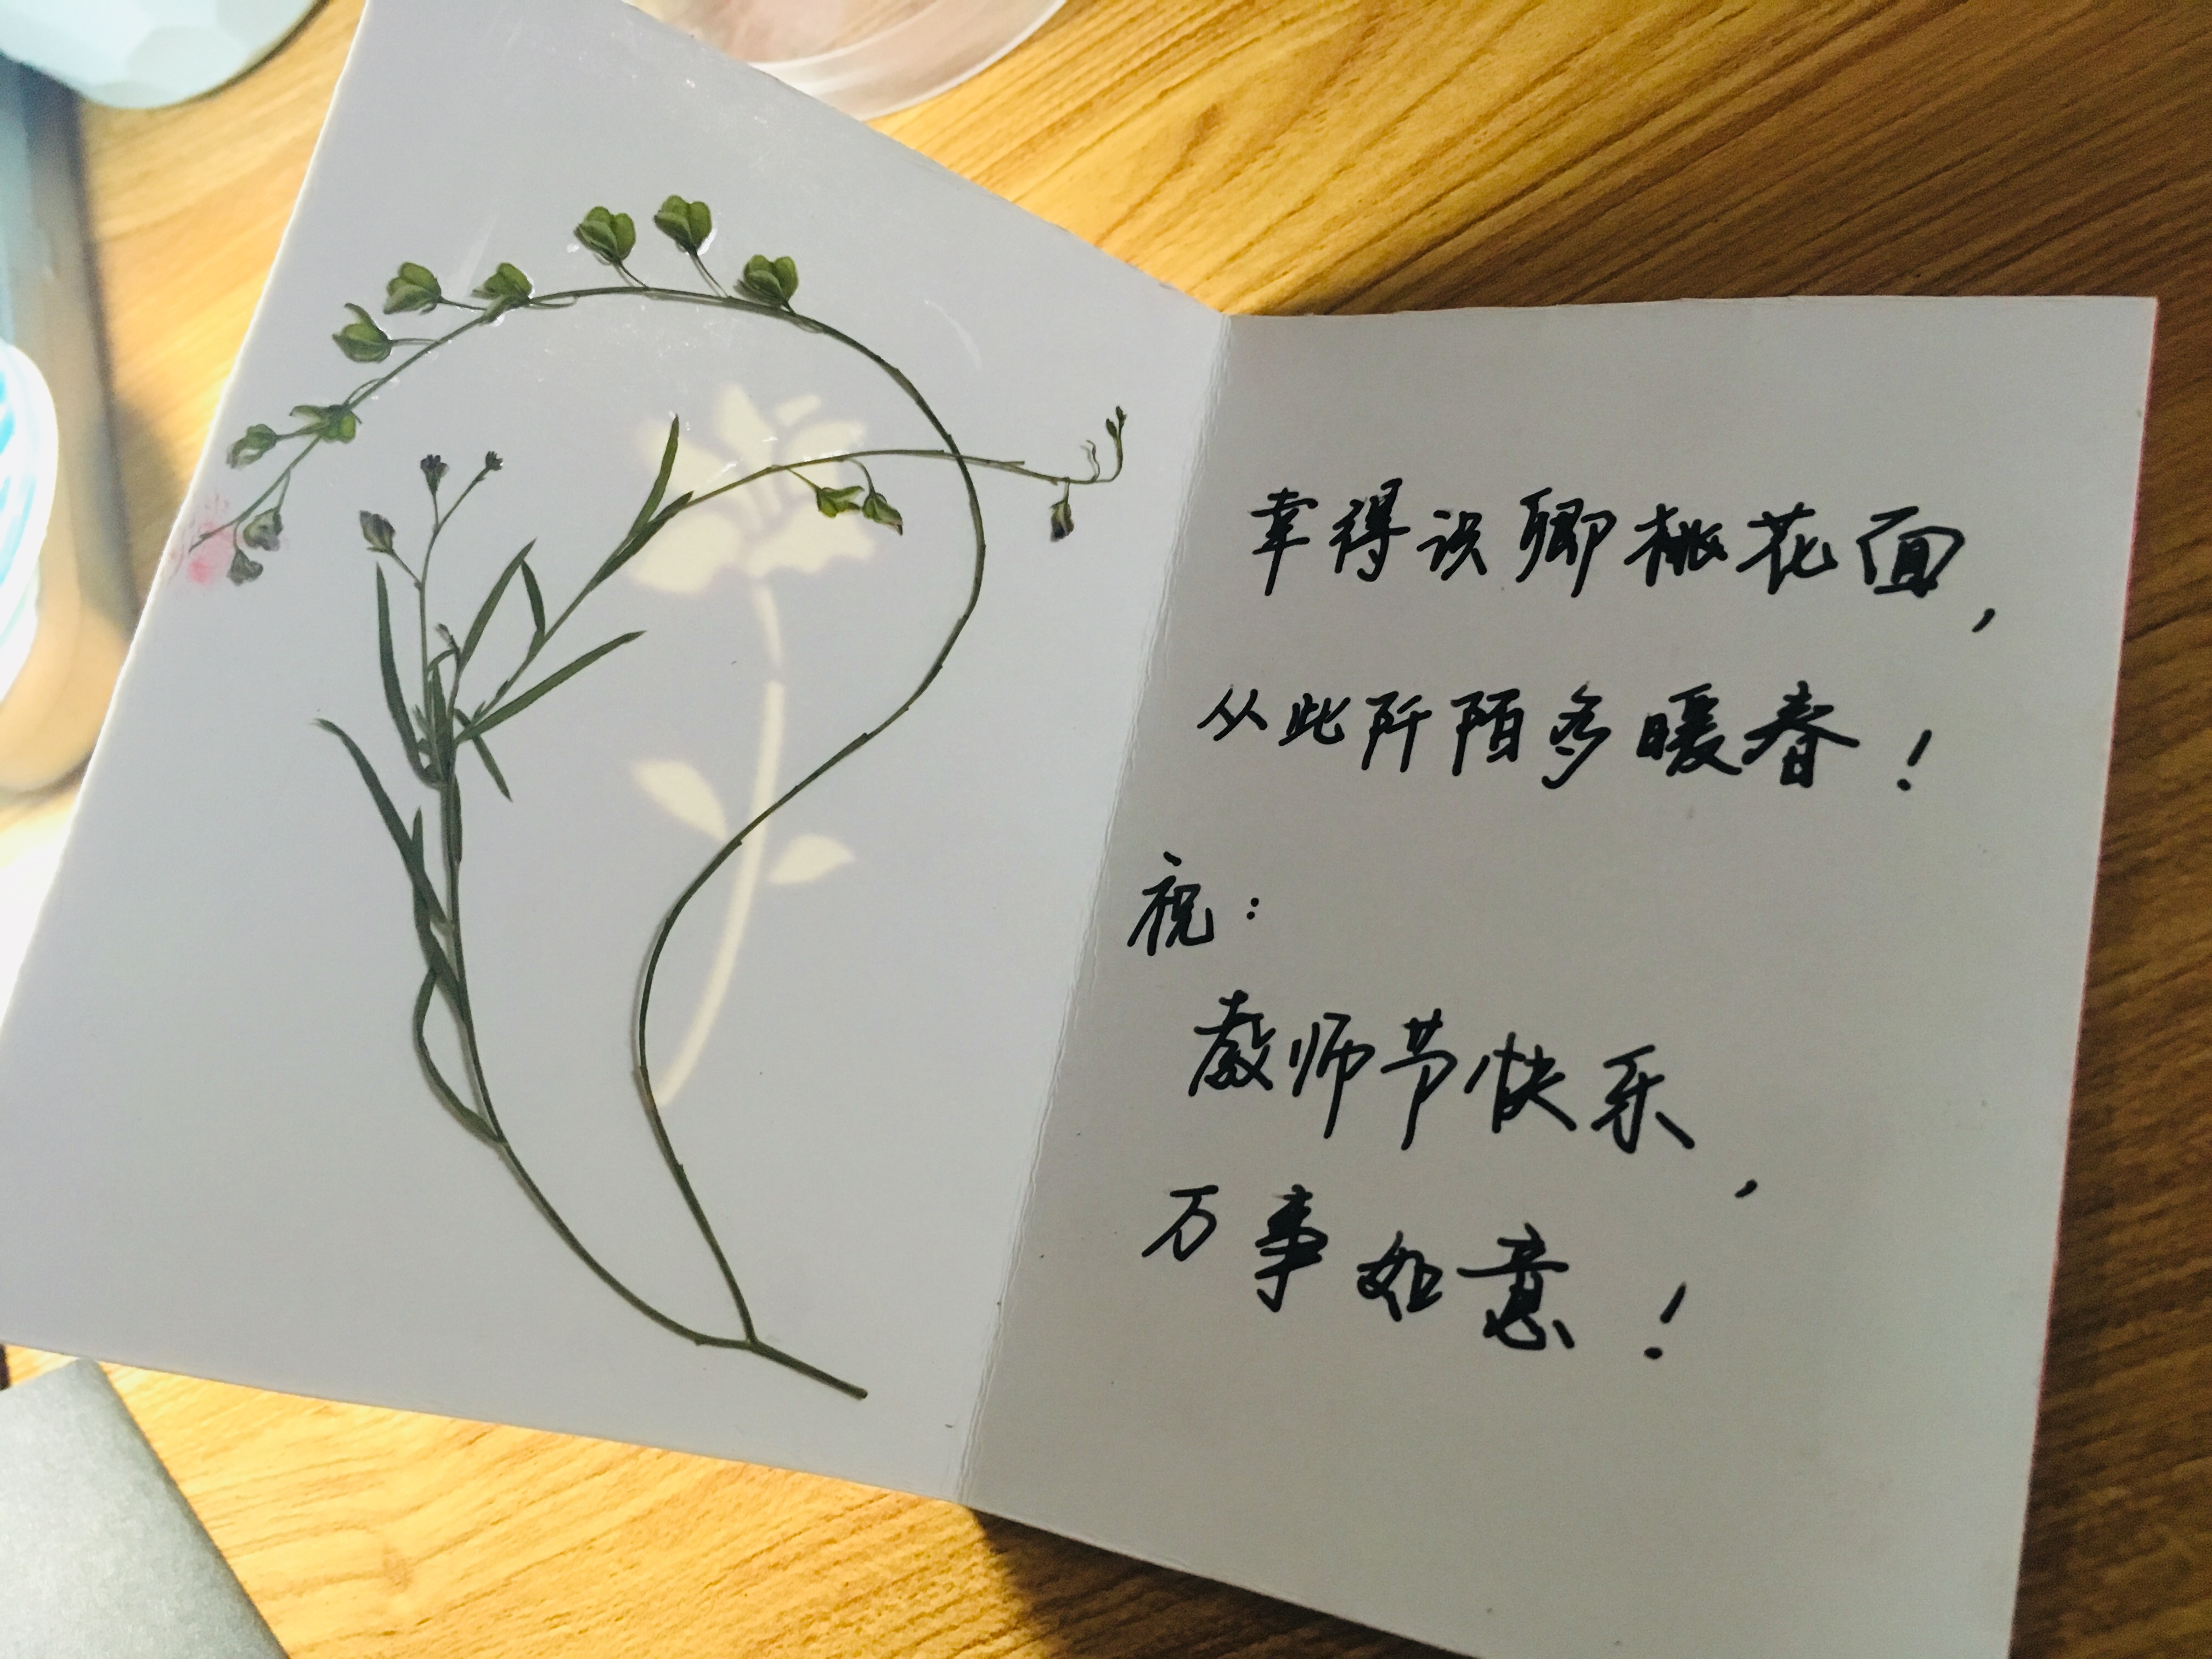 幸得识卿桃花面,
从此阡陌多暖春！
祝：
教师节快乐,
万事如意！